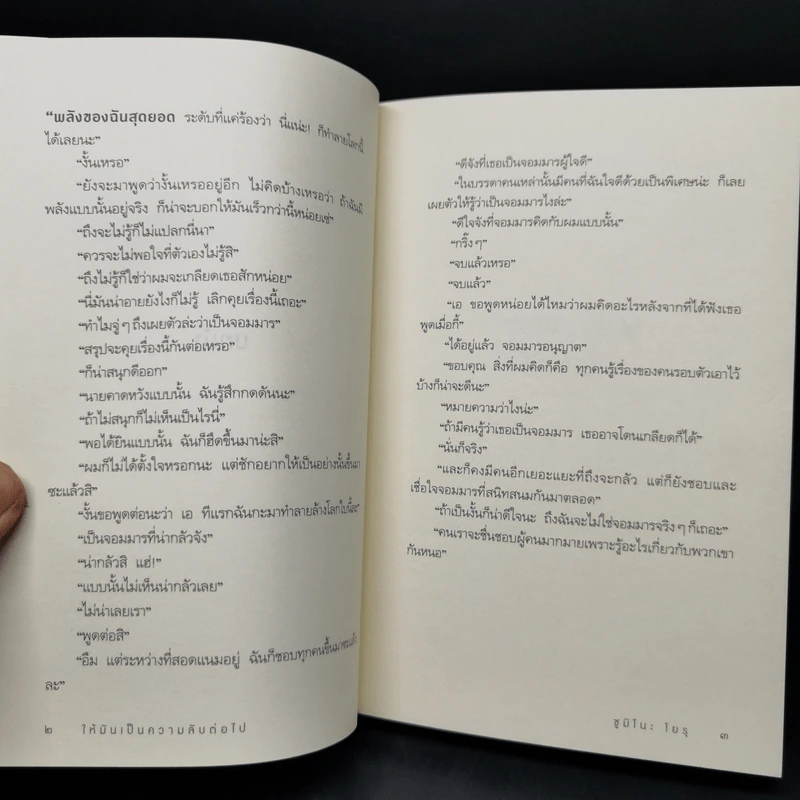 “พลังของฉันสุดยอด ระดับที่แค่ร้องว่า นี่แน่ะ! ก็ทำลายโลกนี้
ได้เลยนะ”
“งั้นเหรอ”
“ยังจะมาพูดว่างั้นเหรออยู่อีก ไม่คิดบ้างเหรอว่า ถ้าฉันมี
พลังแบบนั้นอยู่จริง ก็น่าจะบอกให้มันเร็วกว่านี้หน่อยเซ่”
“ถึงจะไม่รู้ก็ไม่แปลกนี่นา”
“ควรจะไม่พอใจที่ตัวเองไม่รู้สิ”
“ถึงไม่รู้ก็ใช่ว่าผมจะเกลียดเธอสักหน่อย”
“นี่มันน่าอายยังไงก็ไม่รู้ เลิกคุยเรื่องนี้เถอะ”
“ทำไมจู่ๆ ถึงเผยตัวล่ะว่าเป็นจอมมาร”
“สรุปจะคุยเรื่องนี้กันต่อเหรอ”
“ก็น่าสนุกดีออก”
“นายคาดหวังแบบนั้น ฉันรู้สึกกดดันนะ”
“ถ้าไม่สนุกก็ไม่เห็นเป็นไรนี่”
“พอได้ยินแบบนั้น ฉันก็ฮึดขึ้นมาน่ะสิ”
“ผมก็ไม่ได้ตั้งใจหรอกนะ แต่ชักอยากให้เป็นอย่างนั้นขึ้นมา
ซะแล้วสิ”
“งั้นขอพูดต่อนะว่า เอ ทีแรกฉันกะมาทำลายล้างโลกใบนี้ละ”
“เป็นจอมมารที่น่ากลัวจัง”
“น่ากลัวสิ แฮ่!”
“แบบนั้นไม่เห็นน่ากลัวเลย”
“ไม่น่าเลยเรา”
“พูดต่อสิ”
“อืม แต่ระหว่างที่สอดแนมอยู่ ฉันก็ชอบทุกคนขึ้นมาซะแล้ว
ละ”
๒ ให้มันเป็นความลับต่อไป
“ดีจังที่เธอเป็นจอมมารผู้ใจดี”
“ในบรรดาคนเหล่านั้นมีคนที่ฉันใจดีด้วยเป็นพิเศษน่ะ ก็เลย
เผยตัวให้รู้ว่าเป็นจอมมารไงล่ะ”
“ดีใจจังที่จอมมารคิดกับผมแบบนั้น”
“กริ๊งๆ”
“จบแล้วเหรอ”
“จบแล้ว”
“เอ ขอพูดหน่อยได้ไหมว่าผมคิดอะไรหลังจากที่ได้ฟังเธอ
พูดเมื่อกี้”
“ได้อยู่แล้ว จอมมารอนุญาต”
“ขอบคุณ สิ่งที่ผมคิดก็คือ ทุกคนรู้เรื่องของคนรอบตัวเอาไว้
บ้างก็น่าจะดีนะ”
“หมายความว่าไงน่ะ”
“ถ้ามีคนรู้ว่าเธอเป็นจอมมาร เธออาจโดนเกลียดก็ได้”
“นั่นก็จริง”
“และก็คงมีคนอีกเยอะแยะที่ถึงจะกลัว แต่ก็ยังชอบและ
เชื่อใจจอมมารที่สนิทสนมกันมาตลอด”
“ถ้าเป็นงั้นก็น่าดีใจนะ ถึงฉันจะไม่ใช่จอมมารจริงๆ ก็เถอะ”
“คนเราจะชื่นชอบผู้คนมากมายเพราะรู้อะไรเกี่ยวกับพวกเขา
กันหนอ”
ซูมิโนะ โยรุ ๓